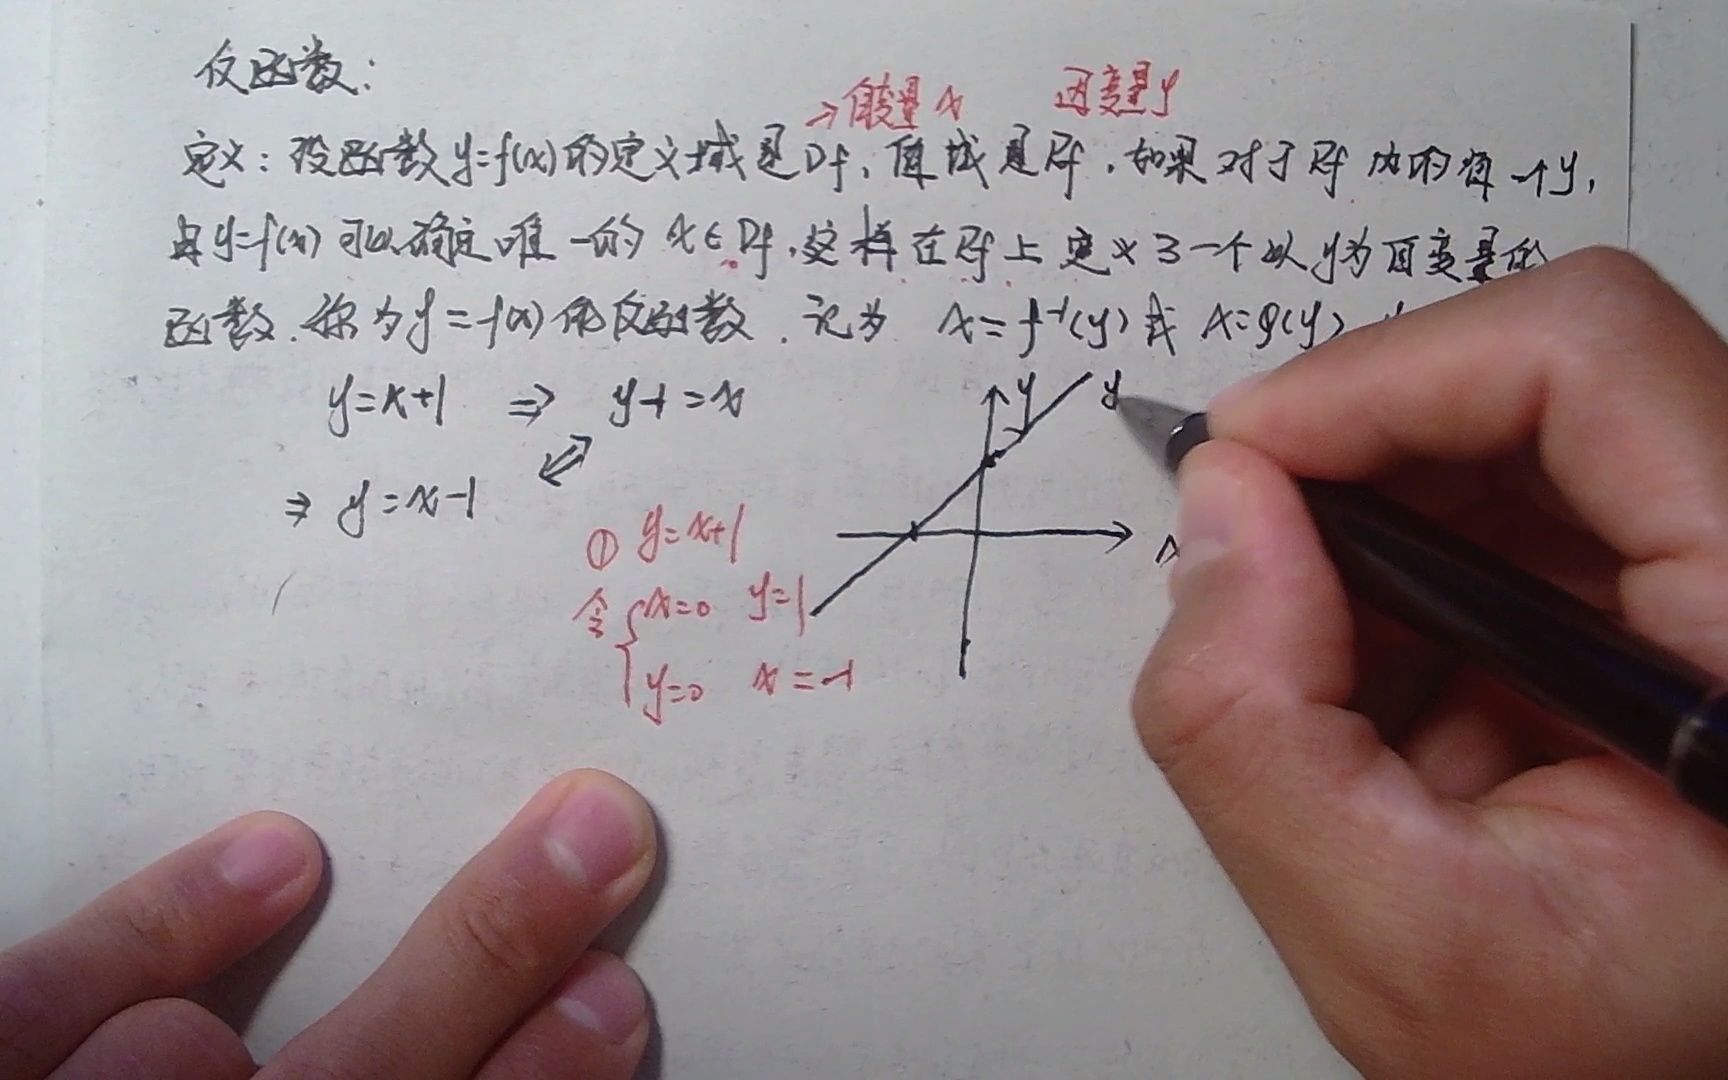 反函数:
→自变量x 因变量y
定义:设函数y=f(x)的定义域是Df,值域是Rf,如果对于Rf内的每一个y,
由y=f(x)可以确定唯一的x∈Df,这样在Rf上定义了一个以y为自变量的
函数,称为y=f(x)的反函数,记为 x=f⁻¹(y)或 x=φ(y)
y=x+1 ⇒ y-1=x
⇒ y=x-1
y y
x
① y=x+1
令 { x=0 y=1
y=0 x=-1